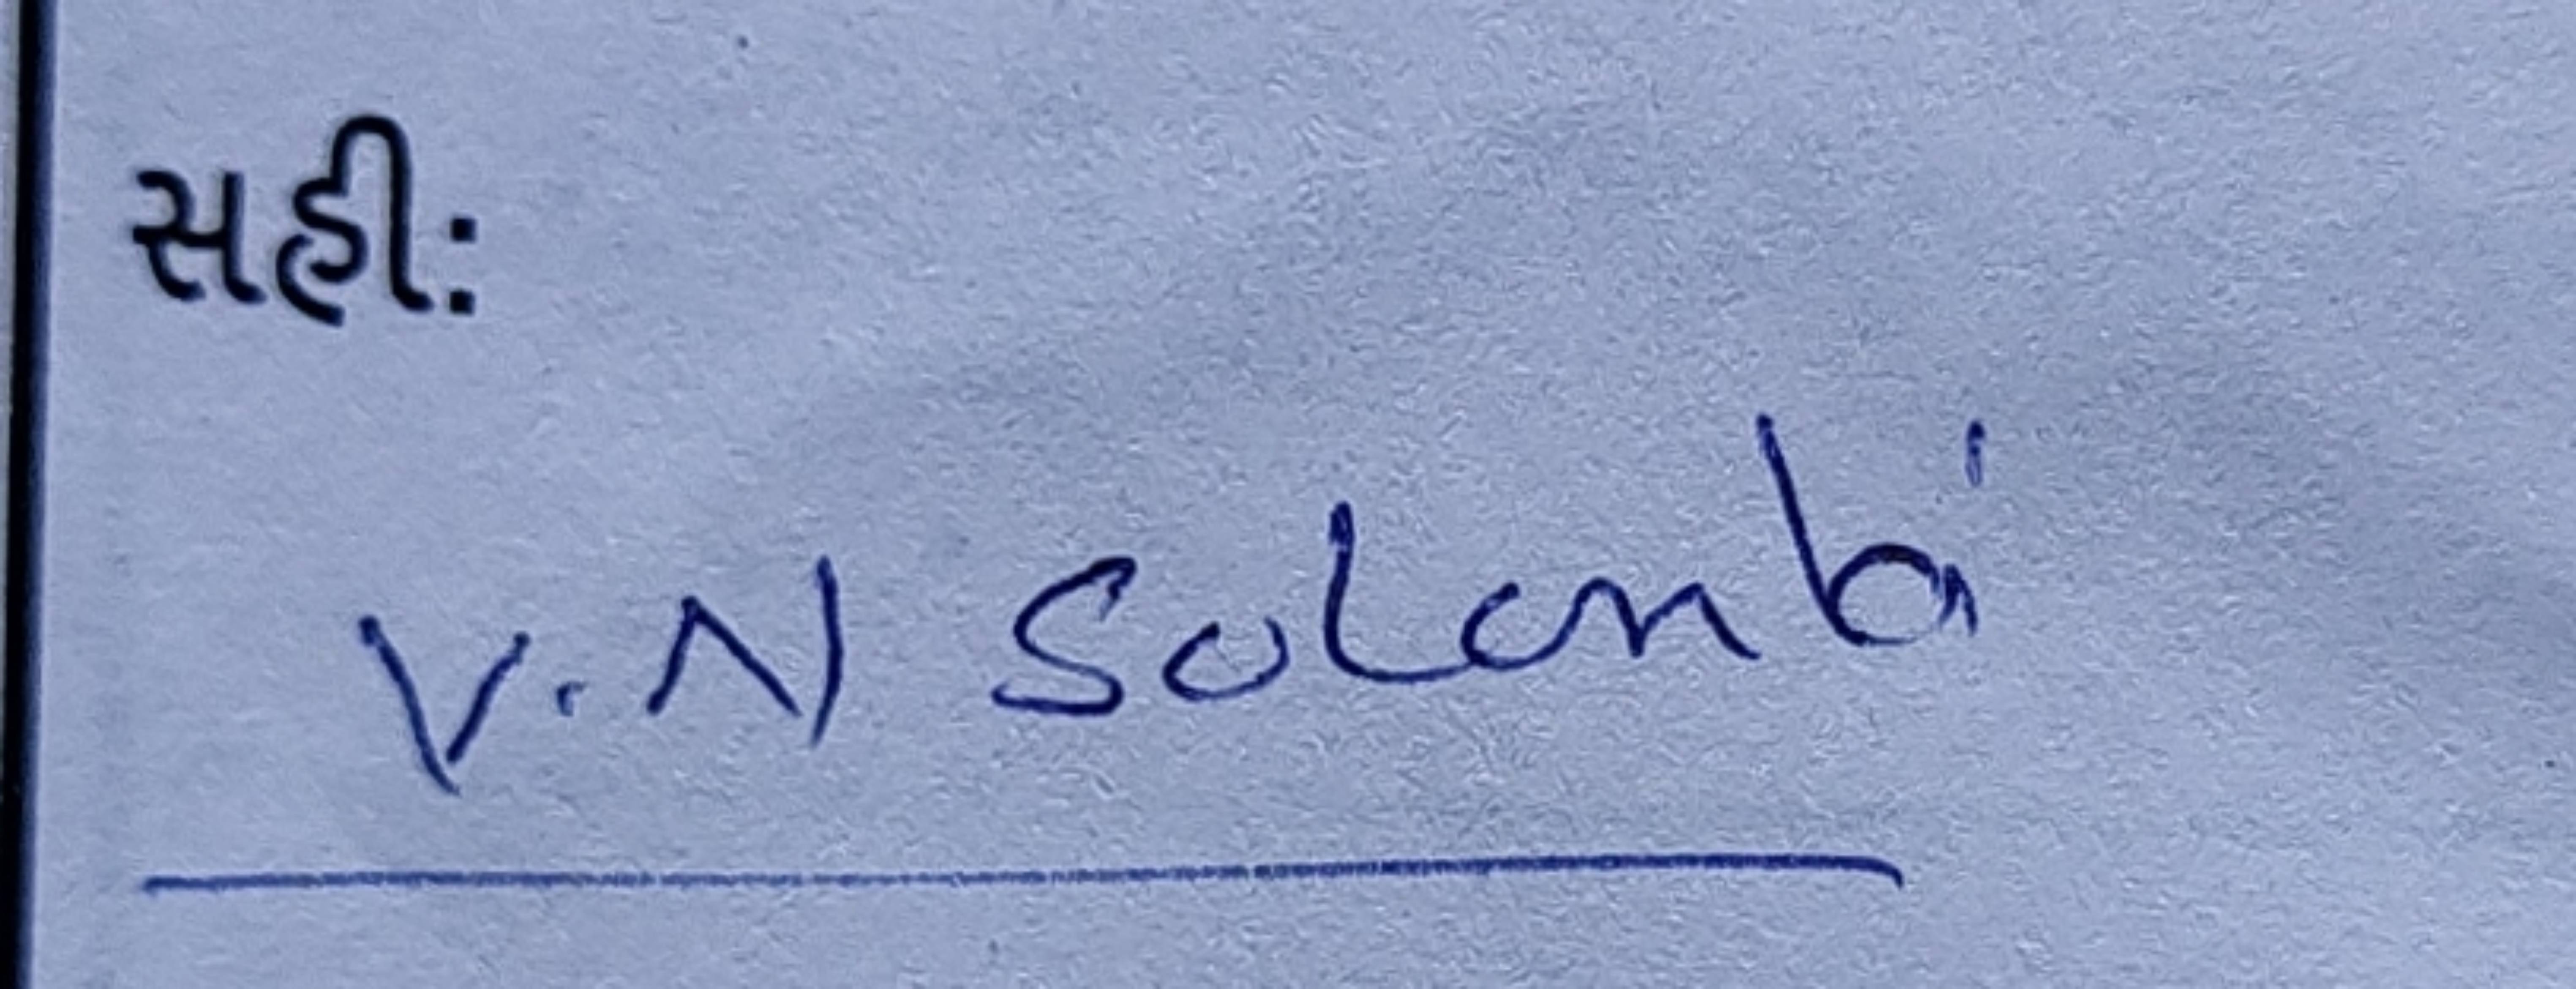 સહી:
V. N Solanki